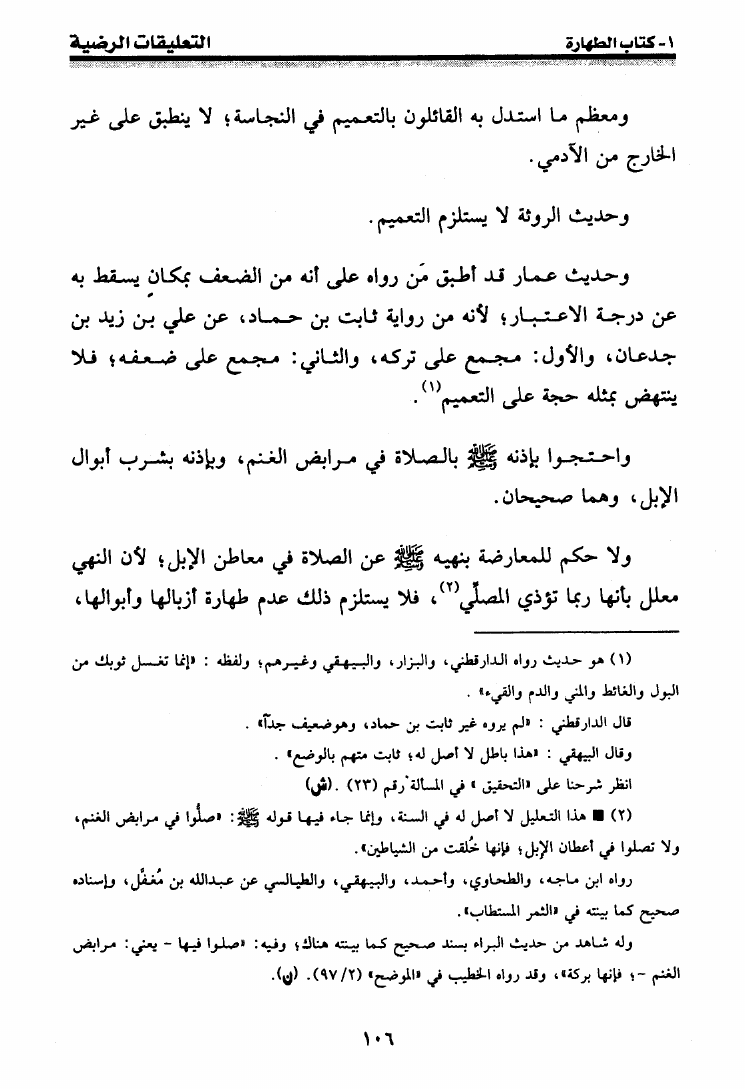 ١- كتاب الطهارة
التعليقات الرضية
ومعظم ما استدل به القائلون بالتعميم في النجاسة؛ لا ينطبق على غير
الخارج من الآدمي.
وحديث الروثة لا يستلزم التعميم.
وحديث عمار قد أطبق مَن رواه على أنه من الضعف بمكانٍ يسقط به
عن درجة الاعتبار؛ لأنه من رواية ثابت بن حماد، عن علي بن زيد بن
جدعان، والأول: مجمع على تركه، والثاني: مجمع على ضعفه؛ فلا
ينتهض بمثله حجة على التعميم(١).
واحتجوا بإذنه ﷺ بالصلاة في مرابض الغنم، وبإذنه بشرب أبوال
الإبل، وهما صحيحان.
ولا حكم للمعارضة بنهيه ﷺ عن الصلاة في معاطن الإبل؛ لأن النهي
معلل بأنها ربما تؤذي المصلِّي(٢)، فلا يستلزم ذلك عدم طهارة أزبالها وأبوالها،
(١) هو حديث رواه الدارقطني، والبزار، والبيهقي وغيرهم؛ ولفظه : «إنما تغسل ثوبك من
البول والغائط والمني والدم والقيء» .
قال الدارقطني : «لم يروه غير ثابت بن حماد، وهوضعيف جدآً» .
وقال البيهقي : «هذا باطل لا أصل له؛ ثابت متهم بالوضع» .
انظر شرحنا على «التحقيق » في المسألة رقم (٢٣) .(ش)
(٢) ■ هذا التعليل لا أصل له في السنة، وإنما جاء فيها قوله ﷺ: «صلُّوا في مرابض الغنم،
ولا تصلوا في أعطان الإبل؛ فإنها خُلقت من الشياطين».
رواه ابن ماجه، والطحاوي، وأحمد، والبيهقي، والطيالسي عن عبدالله بن مُغفَّل، وإسناده
صحيح كما بينته في «الثمر المستطاب».
وله شاهد من حديث البراء بسند صحيح كما بينته هناك؛ وفيه: «صلوا فيها - يعني: مرابض
الغنم -؛ فإنها بركة»، وقد رواه الخطيب في «الموضح» (٢/ ٩٧). (ن).
١٠٦